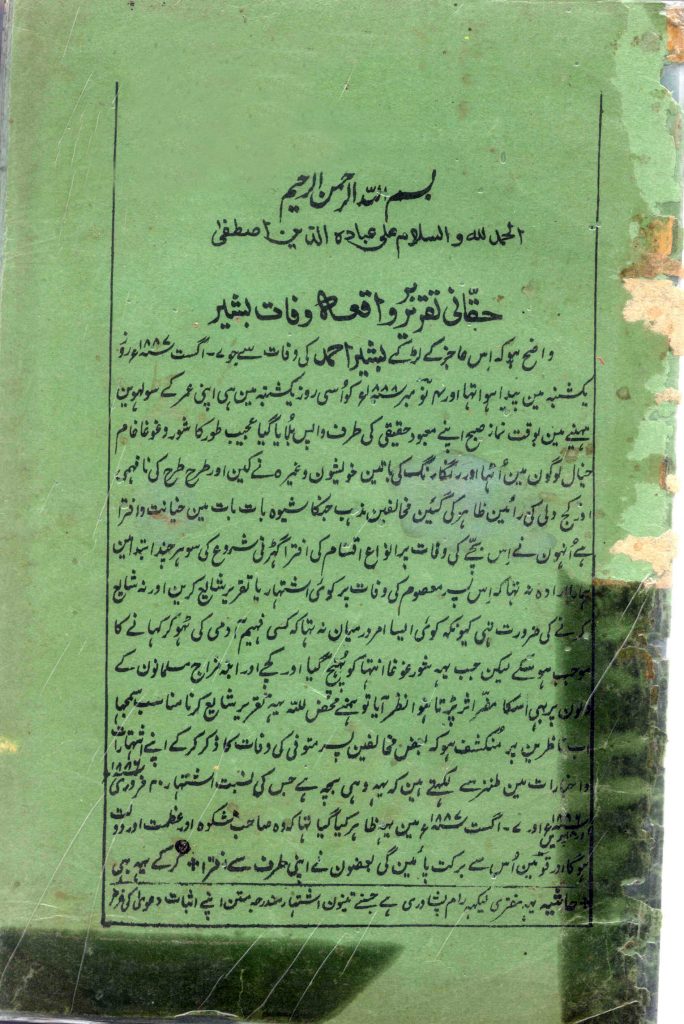 بسم اللہ الرحمن الرحیم
الحمد للہ والسلام علی عبادہ الذین اصطفیٰ
حقّانی تقریر بر واقعہ وفات بشیر
واضح ہو کہ اس عاجز کے لڑکے بشیر احمد کی وفات سے جو ۷۔ اگست ۱۸۸۷ء روز
یکشنبہ مین پیدا ہوا تہا اور ۴ نومبر ۱۸۸۸ء کو اُسی روز یکشنبہ مین ہی اپنی عمر کے سولہوین
مہینے مین بوقت نماز صبح اپنے معبود حقیقی کی طرف واپس بلایا گیا عجیب طور کا شور و غوغا خام
خیال لوگون مین اُٹہا اور رنگارنگ کی باتین خویشون وغیرہ نے کین اور طرح طرح کی نافہمی
اور کج دلی کی رائین ظاہر کی گئین مخالفین مذہب جنکا شیوہ بات بات مین خیانت و افترا
ہے اُنہون نے اس بچے کی وفات پر انواع اقسام کی افترا گہڑنی شروع کی سو ہر چند ابتدا مین
ہمارا ارادہ نہ تہا کہ اس پسر معصوم کی وفات پر کوئی اشتہار یا تقریر شایع کرین اور نہ شایع
کرنے کی ضرورت تہی کیونکہ کوئی ایسا امر درمیان نہ تہا کہ کسی فہیم آدمی کی ٹہوکر کہانے کا
موجب ہو سکے لیکن جب یہہ شور غوغا انتہا کو پہنچ گیا اور کچے اور ابلہ مزاج مسلمانون کے
دلون پر بہی اسکا مضر اثر پڑتا ہوا نظر آیا تو ہمنے محض للہ یہہ تقریر شایع کرنا مناسب سمجہا
اب ناظرین پر منکشف ہو کہ بعض مخالفین پسر متوفی کی وفات کا ذکر کر کے اپنے اشتہارات
و اخبارات مین طنز سے لکہتے ہین کہ یہہ وہی بچہ ہے جس کی نسبت اشتہار ۲۰ فروری ۱۸۸۶ء
اور ۸ اپریل ۱۸۸۶ء اور ۷۔ اگست ۱۸۸۷ء مین یہہ ظاہر کیا گیا تہا کہ وہ صاحب شکوہ اور عظمت اور دولت
ہوگا اور قومین اُس سے برکت پائین گی بعضون نے اپنی طرف سے افترا + کر کے یہہ بہی
+ حاشیہ یہہ مفتری لیکہرام پشاوری ہے جسنے تینون اشتہار مندرجہ متن اپنے اثبات دعویٰ کی غرض